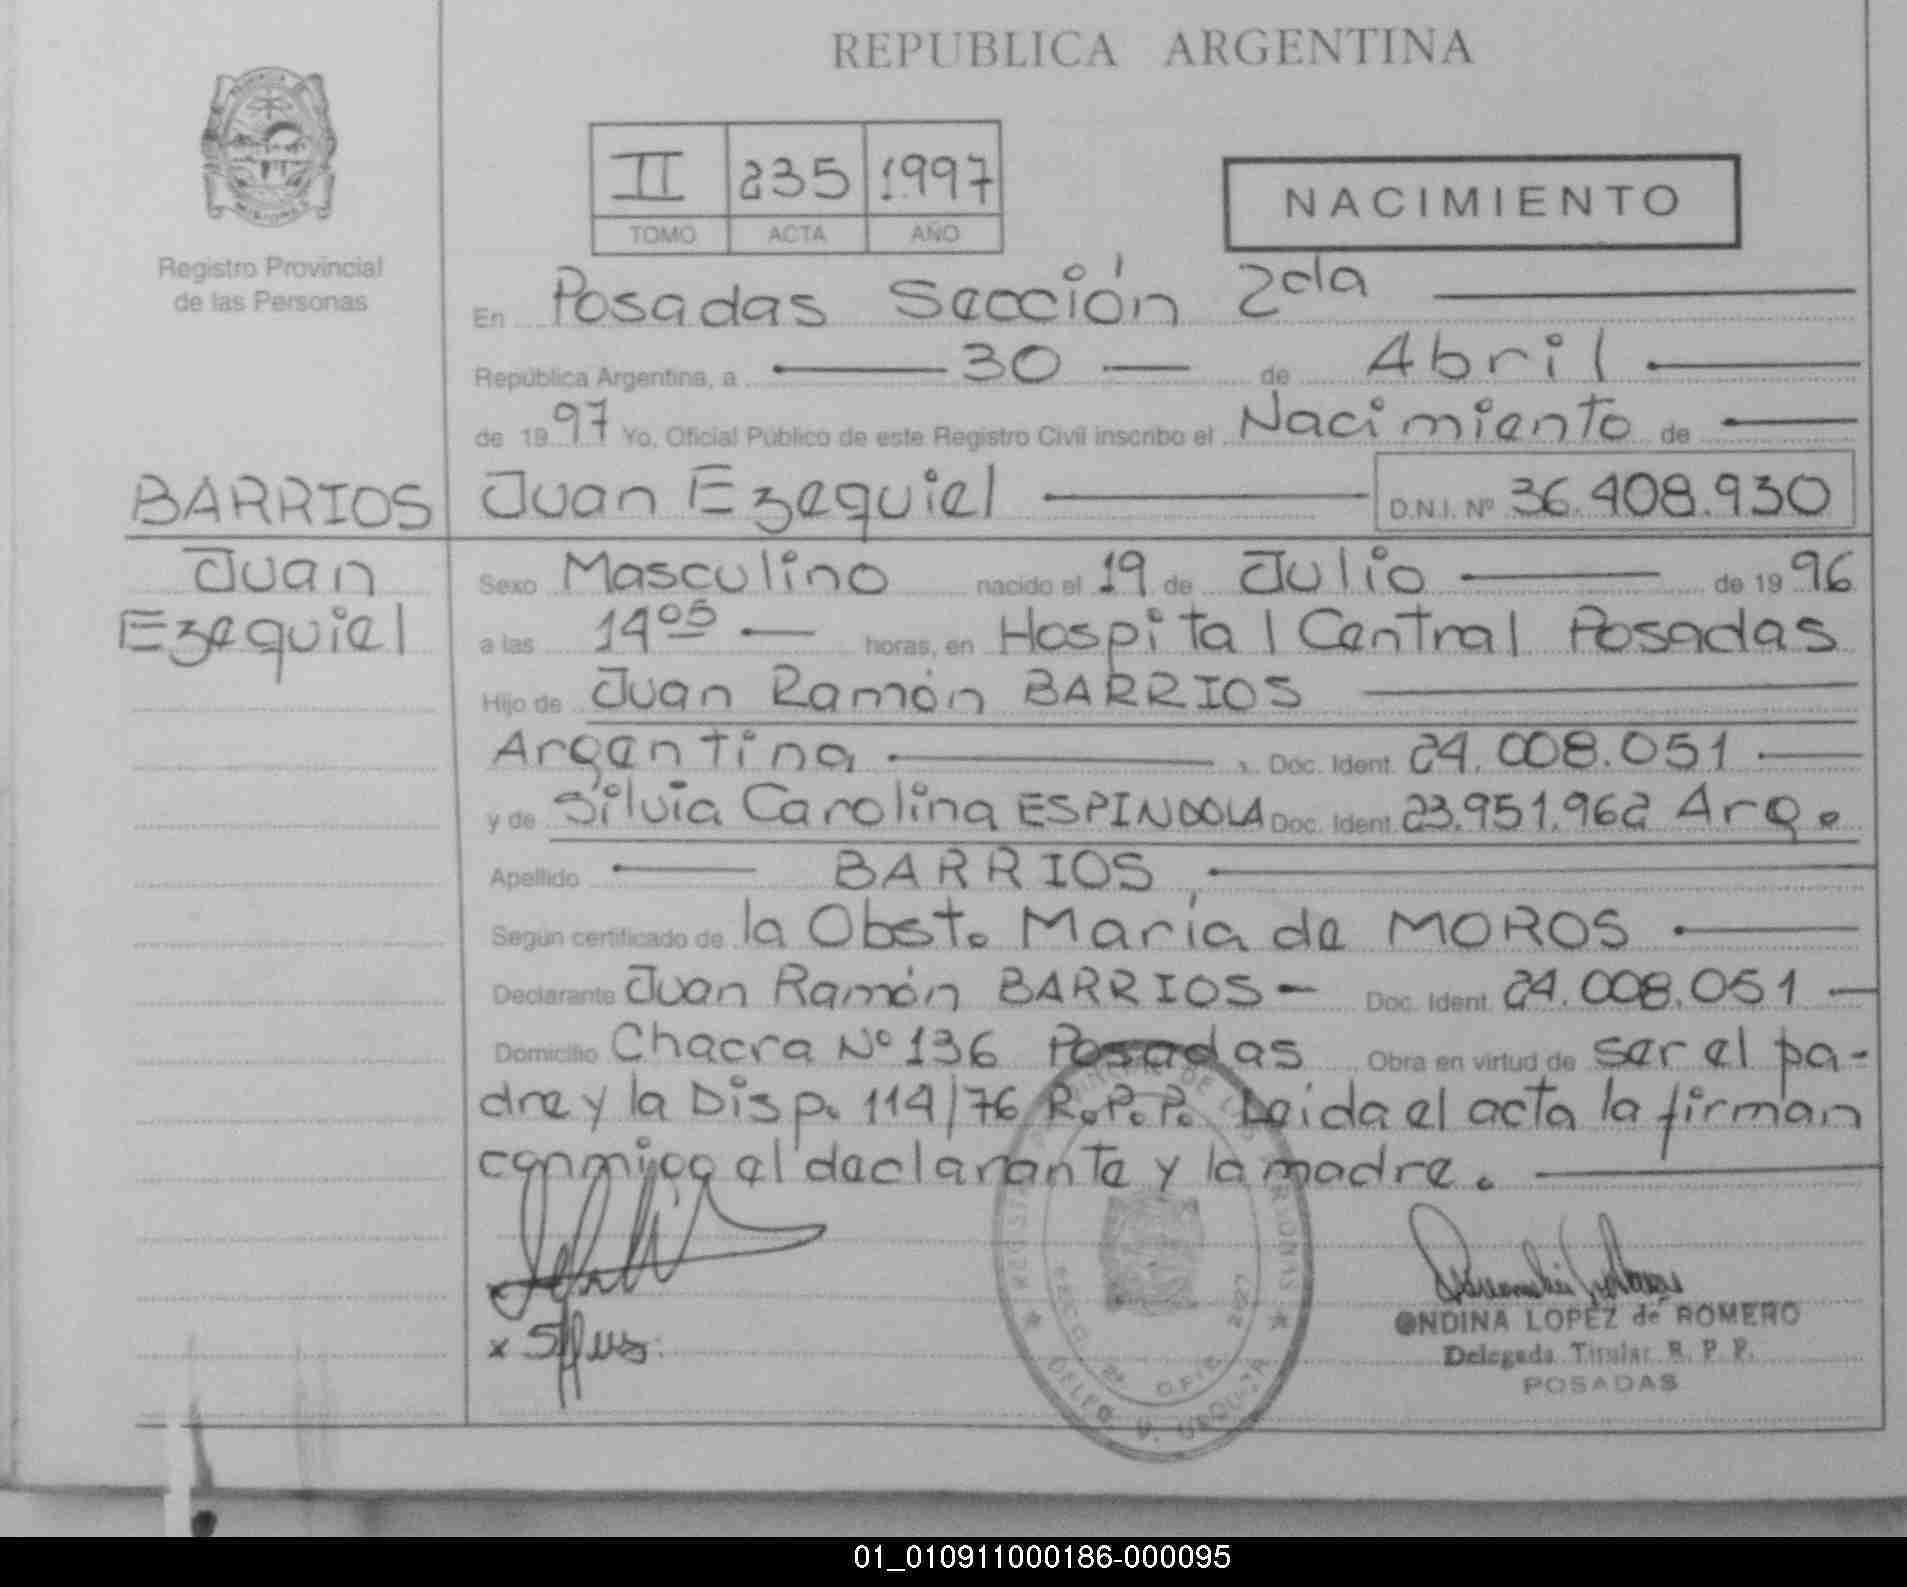 REPUBLICA ARGENTINA
Registro Provincial
de las Personas
II 235 1997
TOMO ACTA AÑO
NACIMIENTO
En Posadas Sección 2da
República Argentina, a 30 de Abril
de 1997 Yo, Oficial Público de este Registro Civil inscribo el Nacimiento de
BARRIOS Juan Ezequiel D.N.I. Nº 36.408.930
Juan
Ezequiel
Sexo Masculino nacido el 19 de Julio de 1996
a las 14 05 horas, en Hospital Central Posadas
Hijo de Juan Ramón BARRIOS
Argentina Doc. Ident. 24.008.051
y de Silvia Carolina ESPINDOLA Doc. Ident. 23.951.962 Arg.
Apellido BARRIOS
Según certificado de la Obst. María de MOROS
Declarante Juan Ramón BARRIOS - Doc. Ident. 24.008.051
Domicilio Chacra Nº 136 Posadas Obra en virtud de ser el pa-
dre y la Disp. 114/76 R.P.P. Leida el acta la firman
conmigo el declarante y la madre.
ONDINA LOPEZ de ROMERO
Delegada Titular R. P. P.
POSADAS
01_010911000186-000095